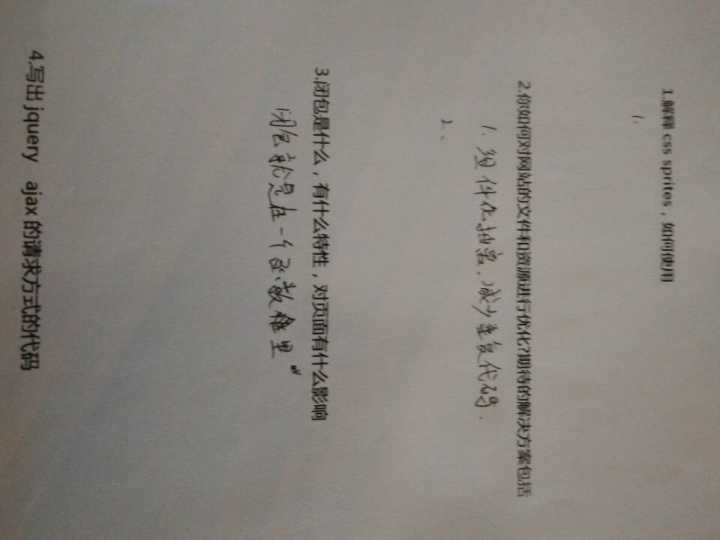 1.解释 css sprites，如何使用
1.
2.你如何对网站的文件和资源进行优化?期待的解决方案包括
1. 组件化抽离，减少重复代码.
2、
3.闭包是什么，有什么特性，对页面有什么影响
闭包就是在一个函数里
4.写出 jquery ajax 的请求方式的代码